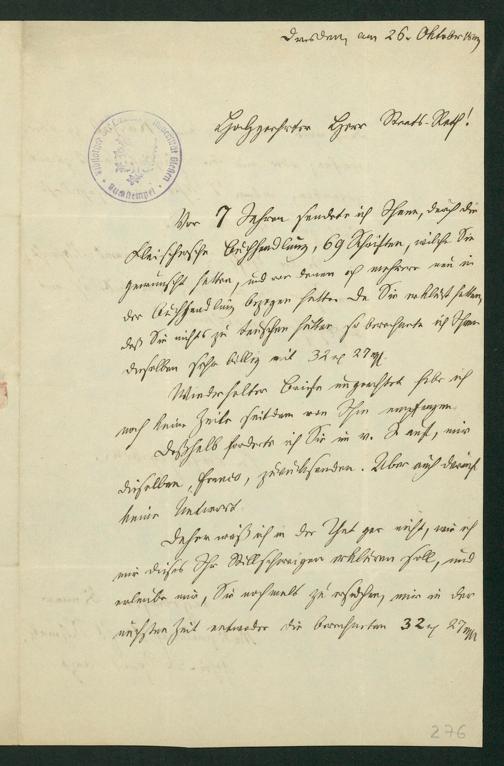 Dresden, am 26. Oktober
Hochgeehrter Herr Staats-Rath!
Vor 7 Jahren sendete ich Ihnen, durch die
Fleischersche Buchhandlung, 69 Schriften, welche Sie
gewünscht hatten, und von denen ich mehrere neu in
der Buchhandlung bezogen hatte. Da Sie erklärt hatten,
daß Sie nichts zu tauschen hätten, so berechnete ich Ihnen
dieselben sehr billig mit 32 27
Wiederholter Briefe ungeachtet habe ich
noch keine Zeile seitdem von Ihnen empfangen.
Deßhalb forderte ich Sie im v. J. auf, mir
dieselben, franco, zurückzusenden. Aber auch darauf
keine Antwort.
Daher weiß ich in der That gar nicht, wie ich
mir dieses Ihr Stillschweigen erklären soll, und
erlaube mir, Sie nochmals zu ersuchen, mir in der
nächsten Zeit entweder die berechneten 32 27
276